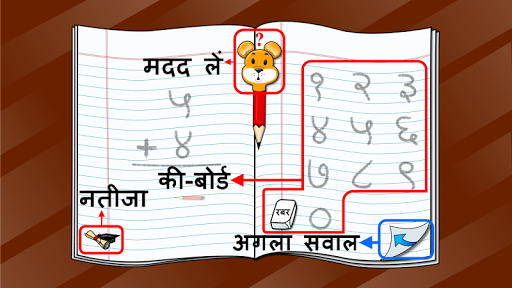 ?
मदद लें
५
+ ४
१ २ ३
४ ५ ६
७ ८ ९
०
की-बोर्ड
रबर
नतीजा
अगला सवाल